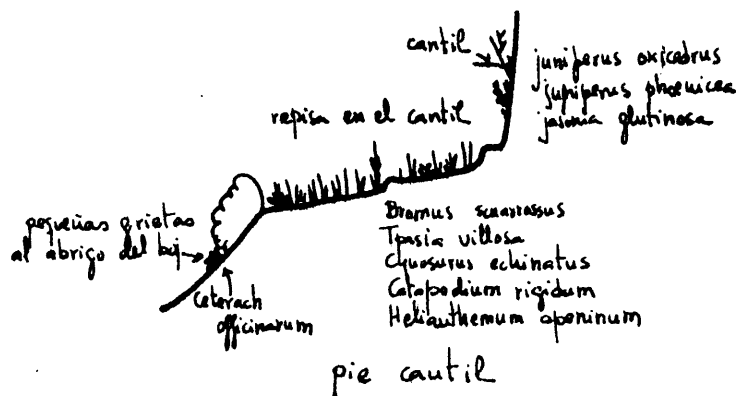 cantil
juniperus oxicedrus
juniperus phoenicea
jasonia glutinosa
repisa en el cantil
pequeñas grietas
al abrigo del boj
Ceterach
officinarum
Bromus squarrosus
Tpasia villosa
Cynosurus echinatus
Catapodium rigidum
Helianthemum apeninum
pie cantil